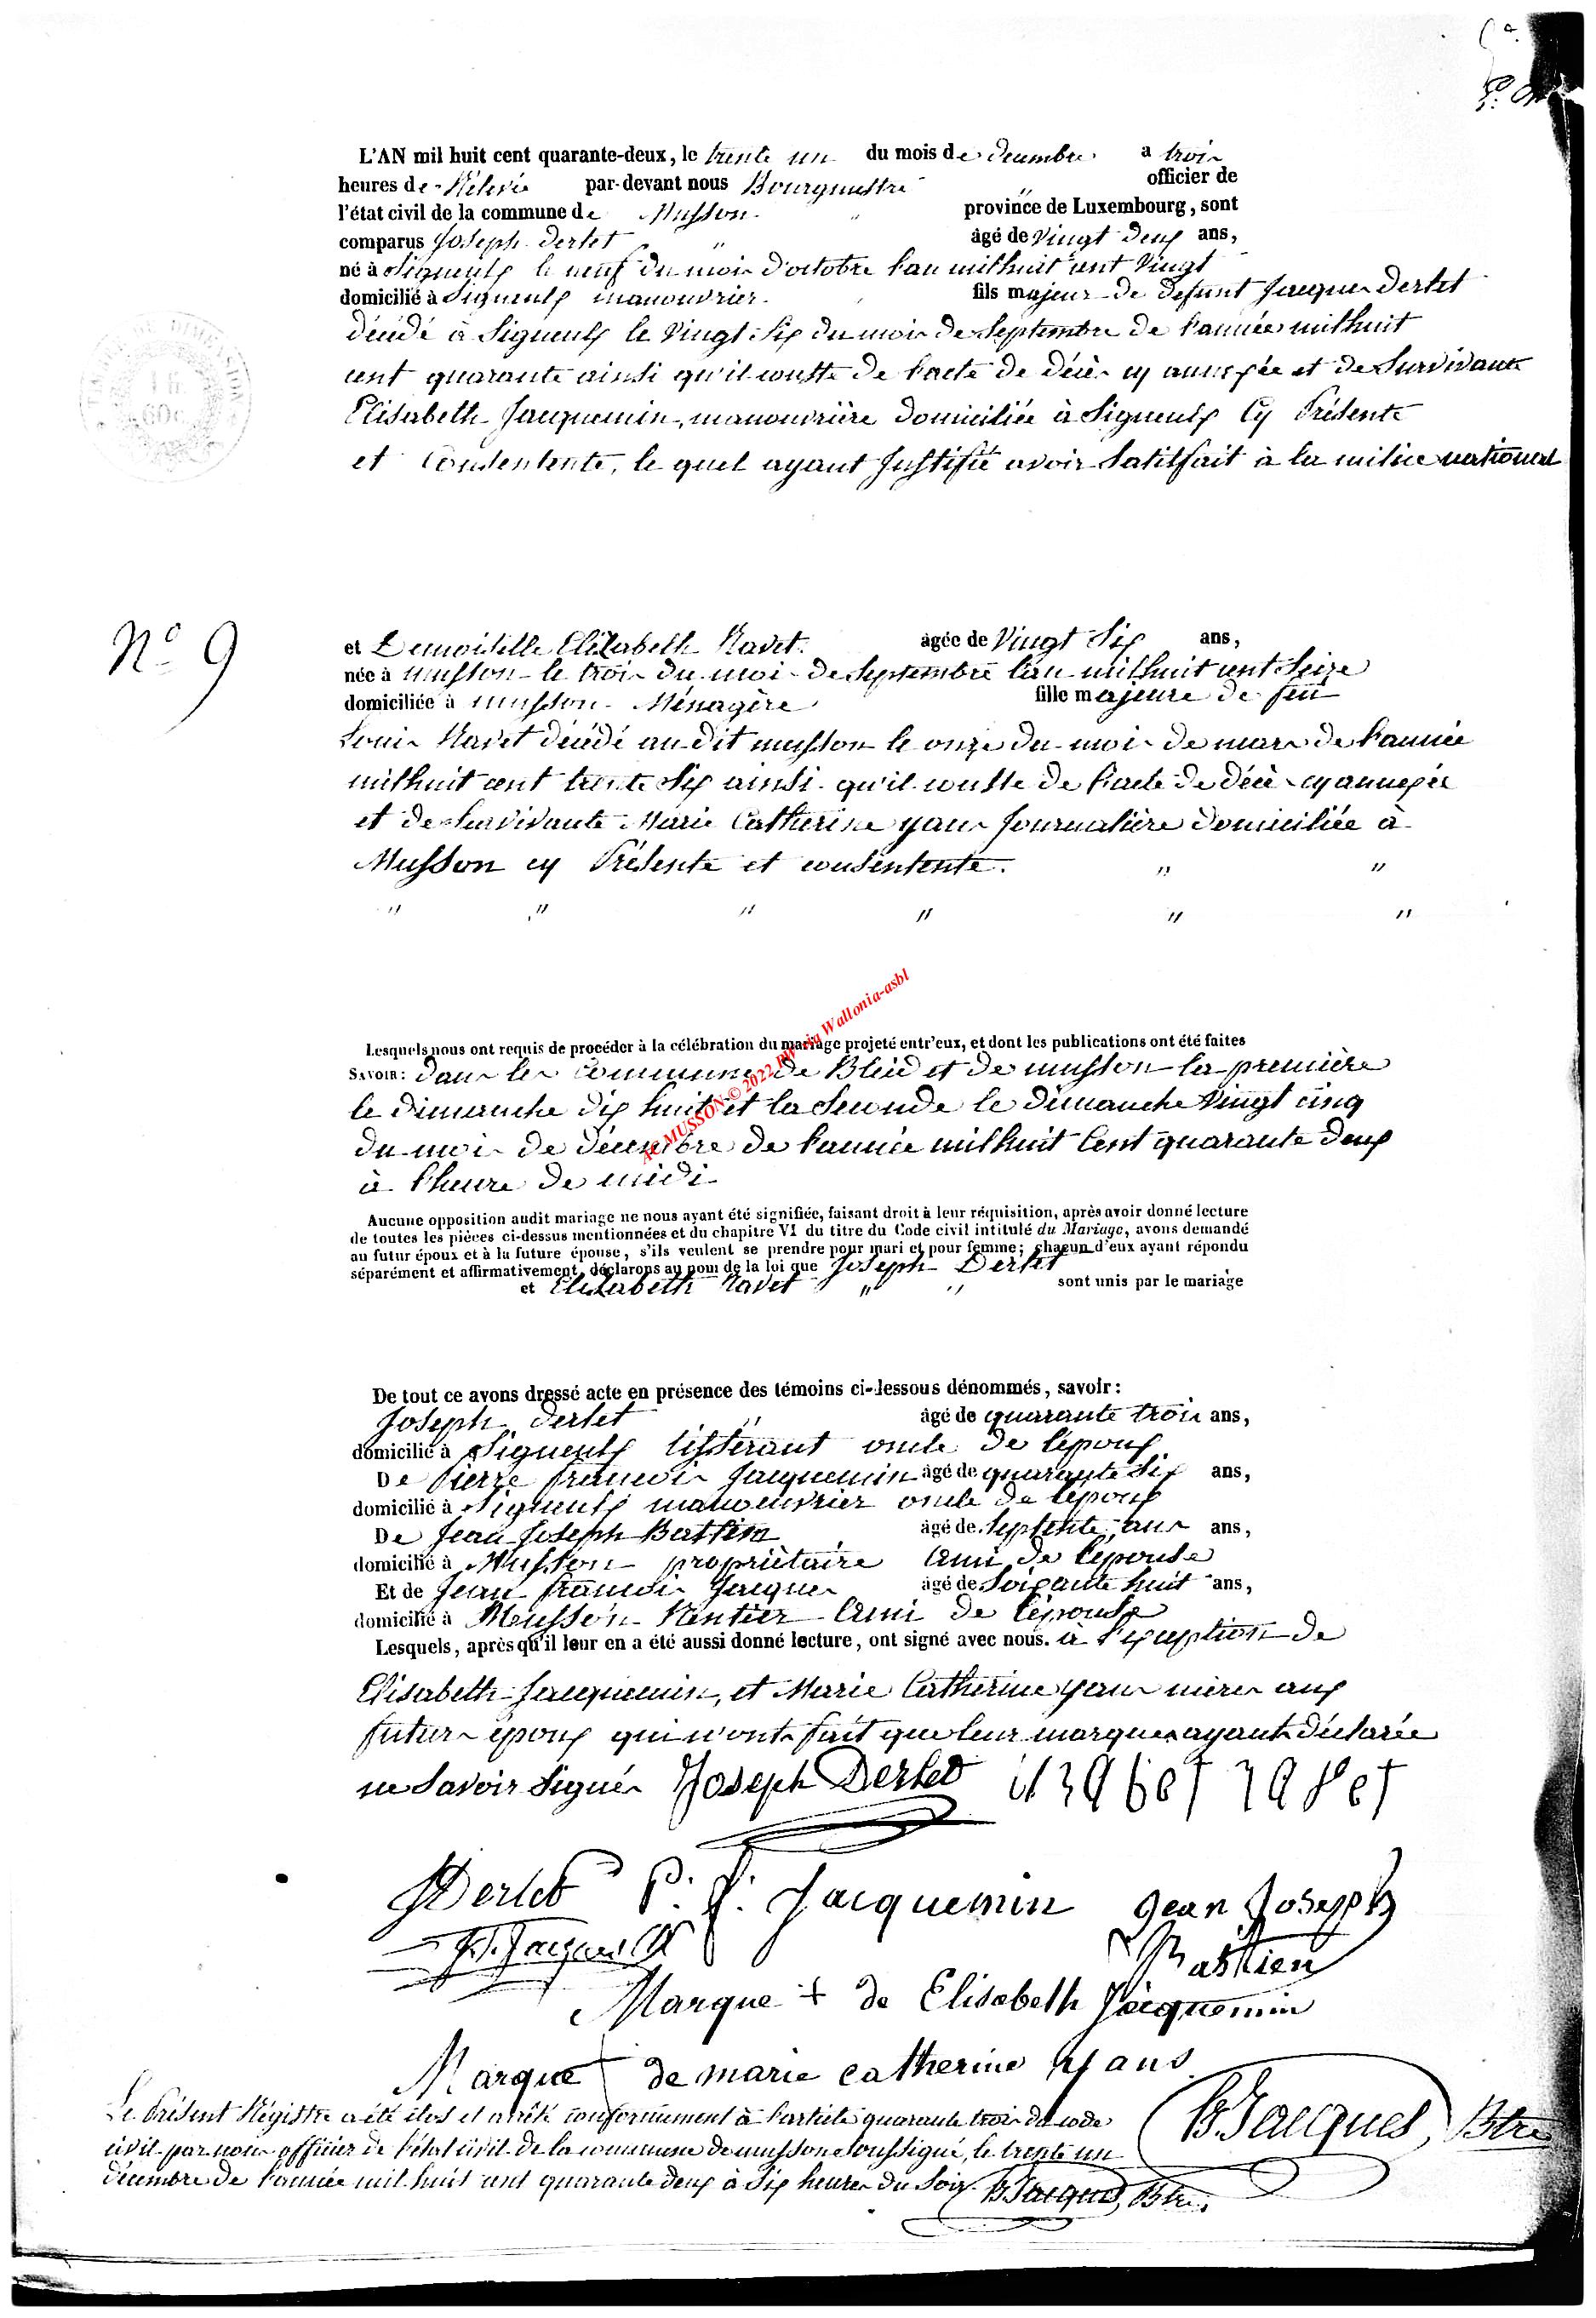 L'AN mil huit cent quarante-deux, le trente un du mois de decembre a trois
heures de Rélevé par-devant nous Bourgmestre officier de
l'état civil de la commune de Musson. " province de Luxembourg, sont
comparus Joseph Derlet " âgé de Vingt Deux ans,
né à Signeulx le neuf du mois d'octobre l'an mil huit cent Vingt
domicilié à Signeulx manouvrier. fils majeur de defunt Jacques Derlet
décédé à Signeulx le Vingt Six du mois de Septembre de l'année mil huit
cent quarante ainsi qu'il conste de l'acte de décès cy annexée et de Survivante
Elisabeth Jacquemin, manouvrière domiciliée à Signeulx Cy Présente
et Consentente, le quel ayant Justifié avoir Satisfait à la milice national
N° 9
et Demoiselle Elizabeth Navet. âgée de Vingt Six ans,
née à musson le trois du mois de Septembre l'an mil huit cent Seize
domiciliée à musson Ménagère fille majeure de feü
Louis Navet décédé au dit musson le onze du mois de mars de l'année
mil huit cent trente Six ainsi qu'il conste de l'acte de décès cy annexée
et de Survivante Marie Catherine yans Journalière domiciliée à
Musson cy Présente et consentente. " "
" " " " " "
AC MUSSON © 2022 Wallonia-asbl
Lesquels nous ont requis de procéder à la célébration du mariage projeté entr'eux, et dont les publications ont été faites
SAVOIR: dans les communes de Bleid et de musson la première
le dimanche dix huit et la Seconde le dimanche Vingt cinq
du mois de décembre de l'année mil huit Cent quarante deux
à l'heure de midi
Aucune opposition audit mariage ne nous ayant été signifiée, faisant droit à leur réquisition, après avoir donné lecture
de toutes les pièces ci-dessus mentionnées et du chapitre VI du titre du Code civil intitulé du Mariage, avons demandé
au futur époux et à la future épouse, s'ils veulent se prendre pour mari et pour femme; chacun d'eux ayant répondu
séparément et affirmativement, déclarons au nom de la loi que Joseph Derlet
et Elizabeth Navet " " sont unis par le mariage
De tout ce avons dressé acte en présence des témoins ci-dessous dénommés, savoir:
Joseph Derlet " âgé de quarante trois ans,
domicilié à Signeulx oncle de l'époux
De Pierre francois Jacquemin âgé de quarante Six ans,
domicilié à Signeulx manouvrier oncle de l'époux
De Jean Joseph Bastien âgé de Septente ans ans,
domicilié à Musson propriètaire ami de l'épouse
Et de Jean francois Jacques âgé de Soixante huit ans,
domicilié à Musson Rentier ami de l'épouse
Lesquels, après qu'il leur en a été aussi donné lecture, ont signé avec nous. à l'exception de
Elisabeth Jacquemin, et Marie Catherine yans mères aux
futurs époux qui n'ont fait que leur marques ayant déclarée
ne Savoir Signés Joseph Derlet
JDerlet P. f. Jacquemin Jean Joseph
J. f. Jacques Bastien
Marque + de Elisabeth Jacquemin
Marque + de marie catherine yans
Le Présent Régistre a été clos et arrêté conformément à l'article quarante trois du code
civil par nous officier de l'état civil de la commune de musson Soussigné, le trente un
décembre de l'année mil huit cent quarante deux à Six heures du Soir.
Jacques, Btre
Jacques, Btre.